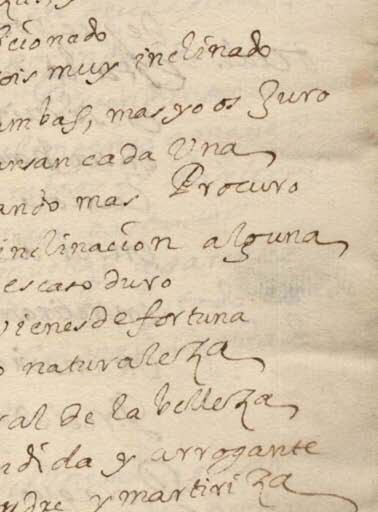 cionado
ois muy inclinado
ambas, mas yo os Juro
ansan cada Una
ando mas Procuro
inclinacion alguna
es caso duro
vienes de fortuna
o naturaleza
ral de la belleza
ndida y arrogante
y martiriza